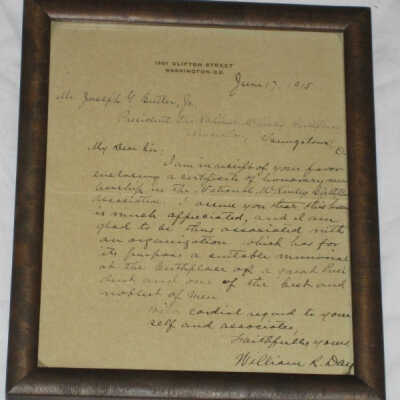 1301 CLIFTON STREET
WASHINGTON, D.C.
June 17, 1915
Mr. Joseph G. Butler, Jr.
President The National McKinley Birthplace
Association, Youngstown, O.
My Dear Sir:
I am in receipt of your favor
enclosing a certificate of honorary mem
bership in the National McKinley Birthplace
Association. I assure you that this honor
is much appreciated, and I am
glad to be thus associated with
an organization which has for
its purpose a suitable memorial
at the birthplace of a great Presi
dent and one of the best and
noblest of men
With cordial regard to your
self and associates,
Faithfully yours
William R. Day